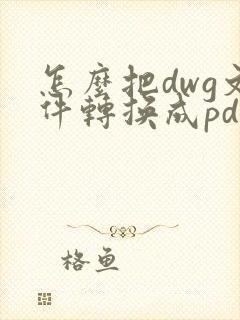 怎麼把dwg文
件轉換成pd
格魚